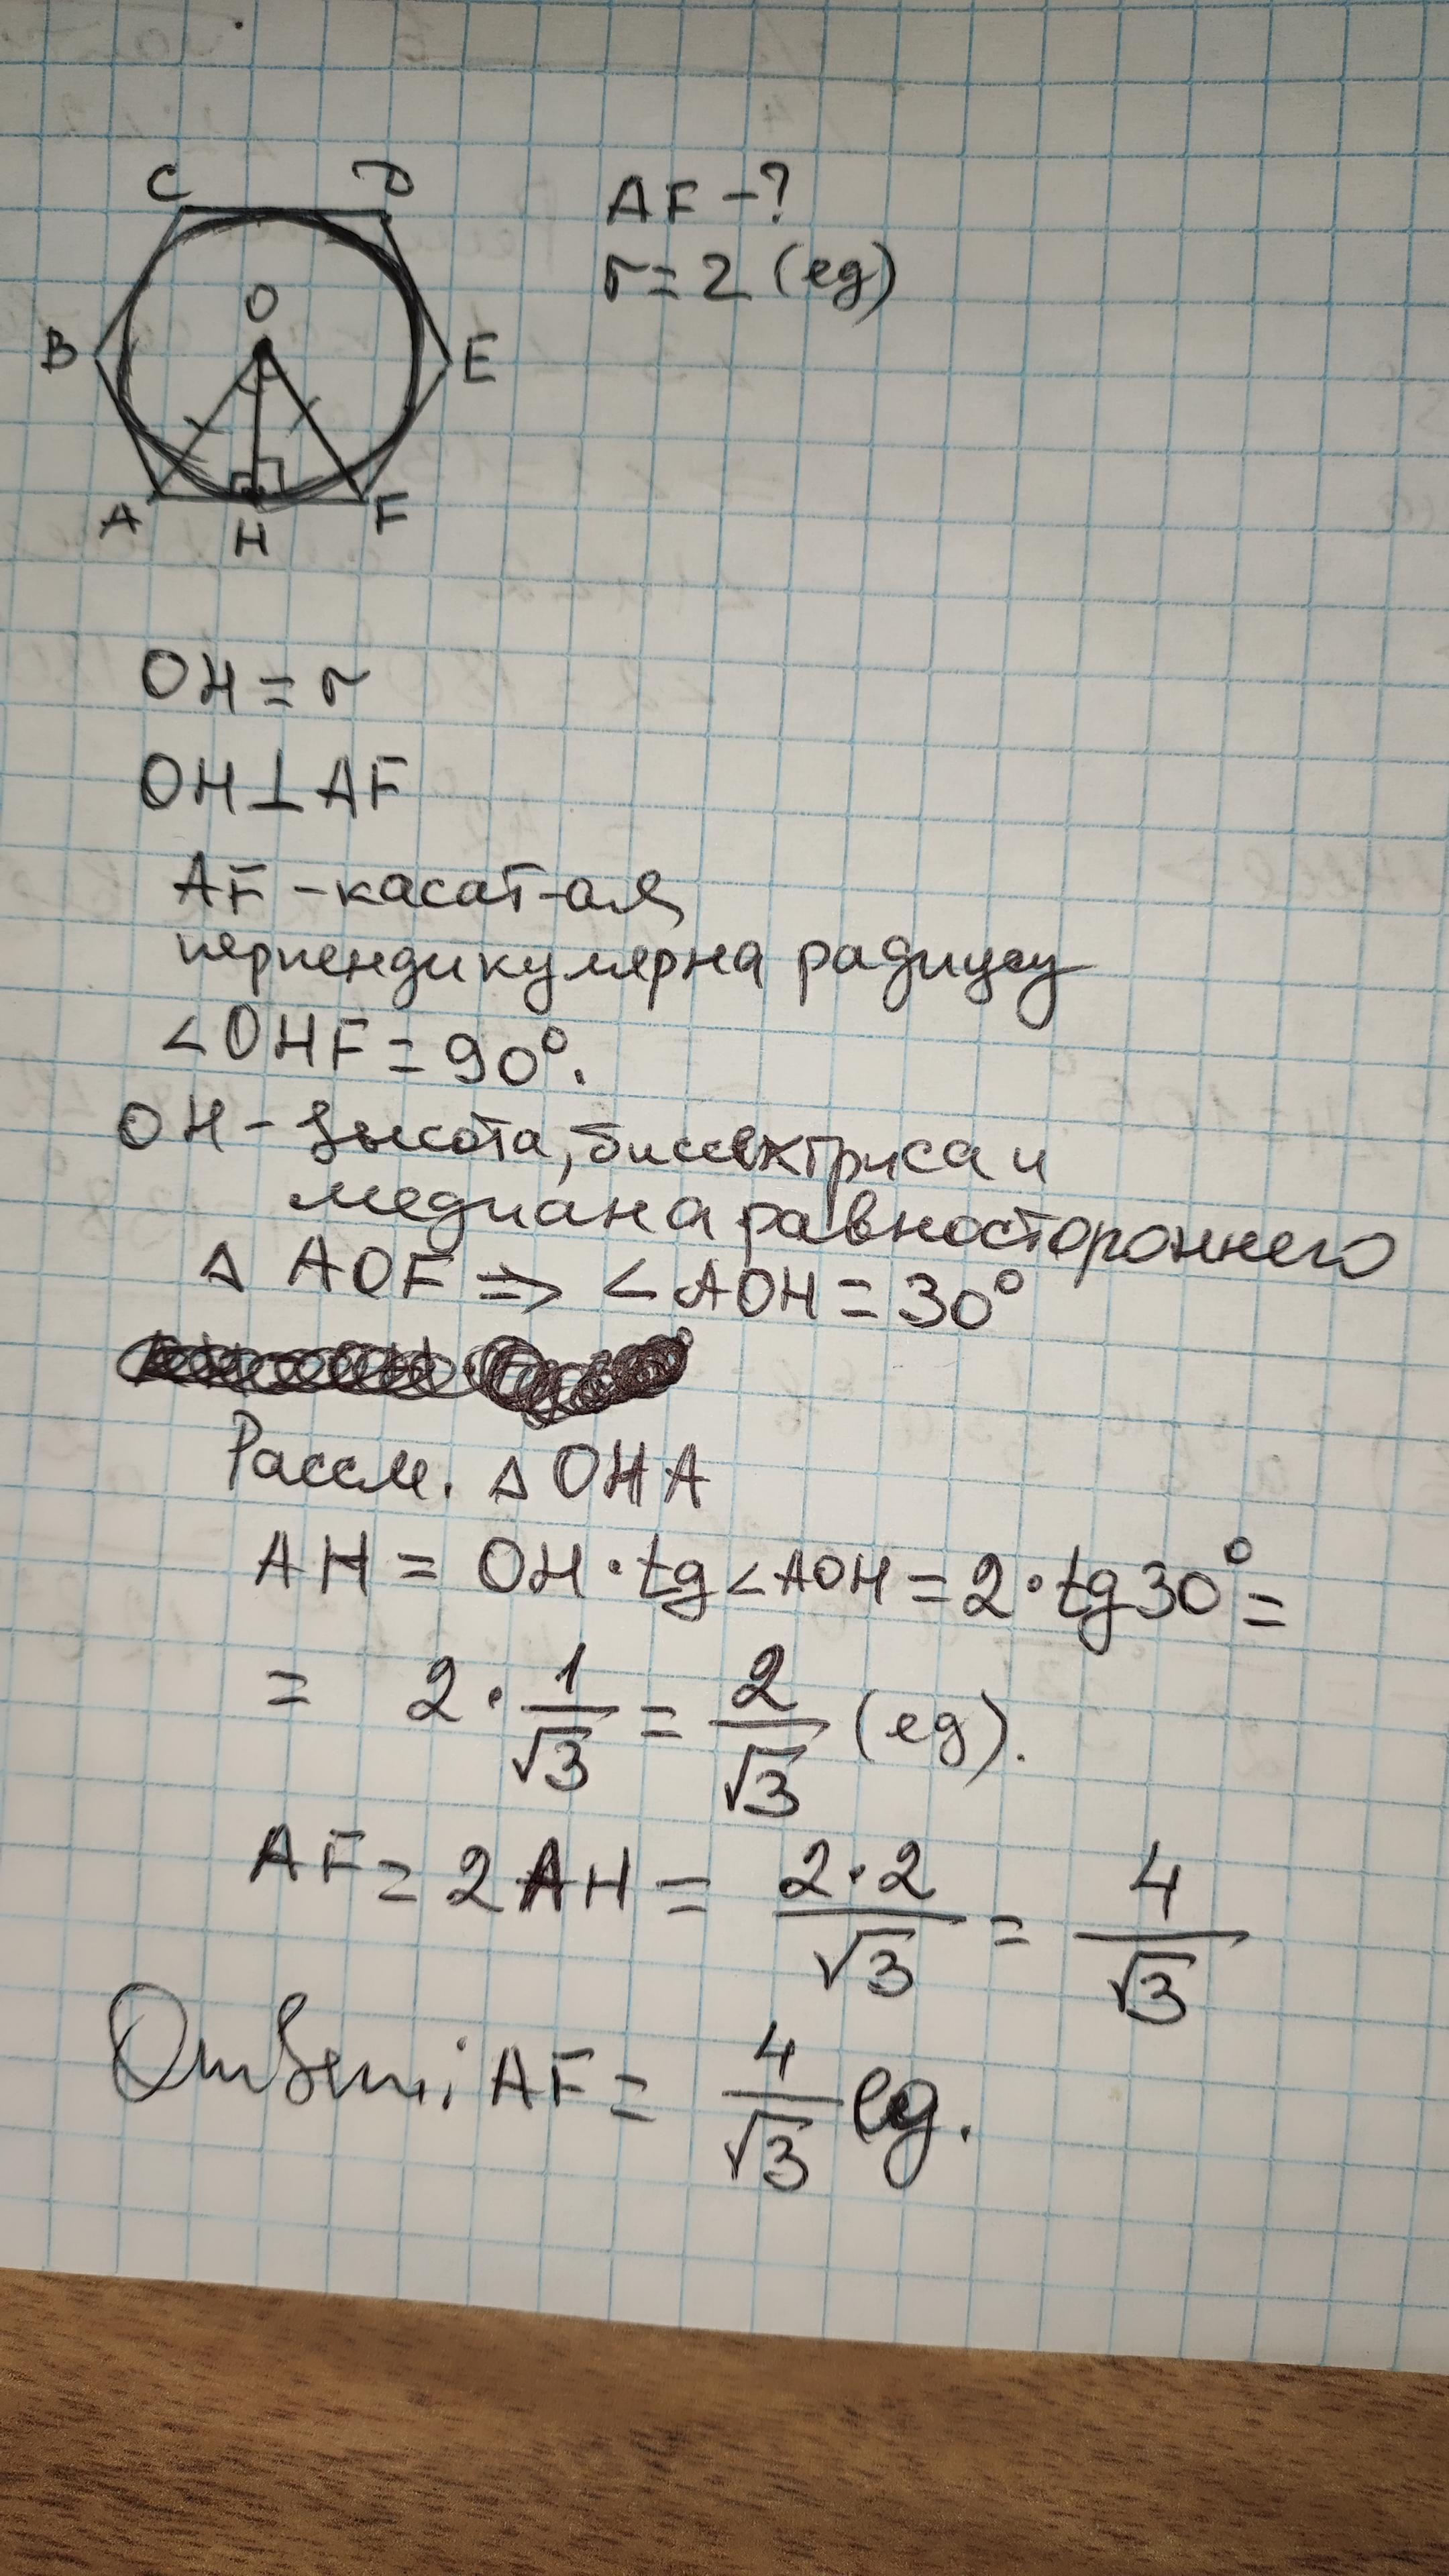 C D
AF - ?
r = 2 (ед)
O
B E
A H F
OH = r
OH ⊥ AF
AF - касат-ая
перпендикулярна радиусу
∠OHF = 90°.
OH - высота, биссектриса и
медиана равностороннего
△ AOF ⇒ ∠AOH = 30°
Рассм. △ OHA
AH = OH · tg∠AOH = 2 · tg 30° =
= 2 · 1/√3 = 2/√3 (ед).
AF = 2AH = 2·2/√3 = 4/√3
Ответ: AF = 4/√3 ед.